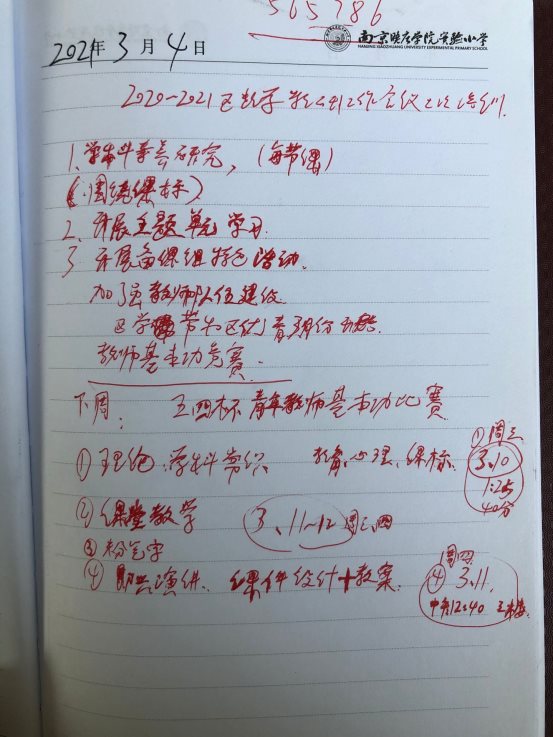 565786
南京晓庄学院实验小学
NANJING XIAOZHUANG UNIVERSITY EXPERIMENTAL PRIMARY SCHOOL
2021年3月4日
2020-2021区数学 工作会议 培训
1. 学科素养研究，（每节课）
（围绕课标）
2. 开展主题单元学习
3 开展备课组特色活动.
加强教师队伍建设
教师基本功竞赛.
下周： 青年教师基本功比赛
① 理论 学科常识 教育、心理、课标.
①周三
3.10
1:25
40分
② 课堂教学 3、11~12 周三、四
③ 粉笔字
④ 即兴演讲. 课件设计+教案.
周四
④ 3.11.
中午12:40